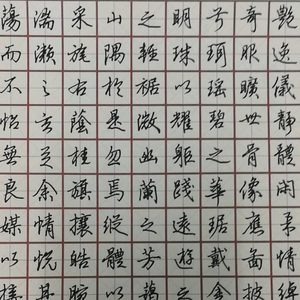 艷逸儀靜體閑柔情綽
奇服曠世骨像應圖披
兮珥瑤碧之華琚戴金
明珠以耀軀踐遠遊之
之輕裾微幽蘭之芳藹
山隅於是忽焉縱體以
采旄右蔭桂旗攘皓腕
湍瀨之玄芝余情悅其
蕩而不怡無良媒以接